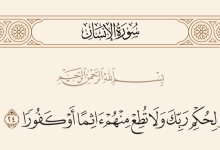 سُورَةُ الإِنسَانِ
بِسْمِ اللَّهِ الرَّحْمَنِ الرَّحِيمِ
لِحُكْمِ رَبِّكَ وَلَا تُطِعْ مِنْهُمْ ءَاثِمًا أَوْ كَفُورًا ٢٤